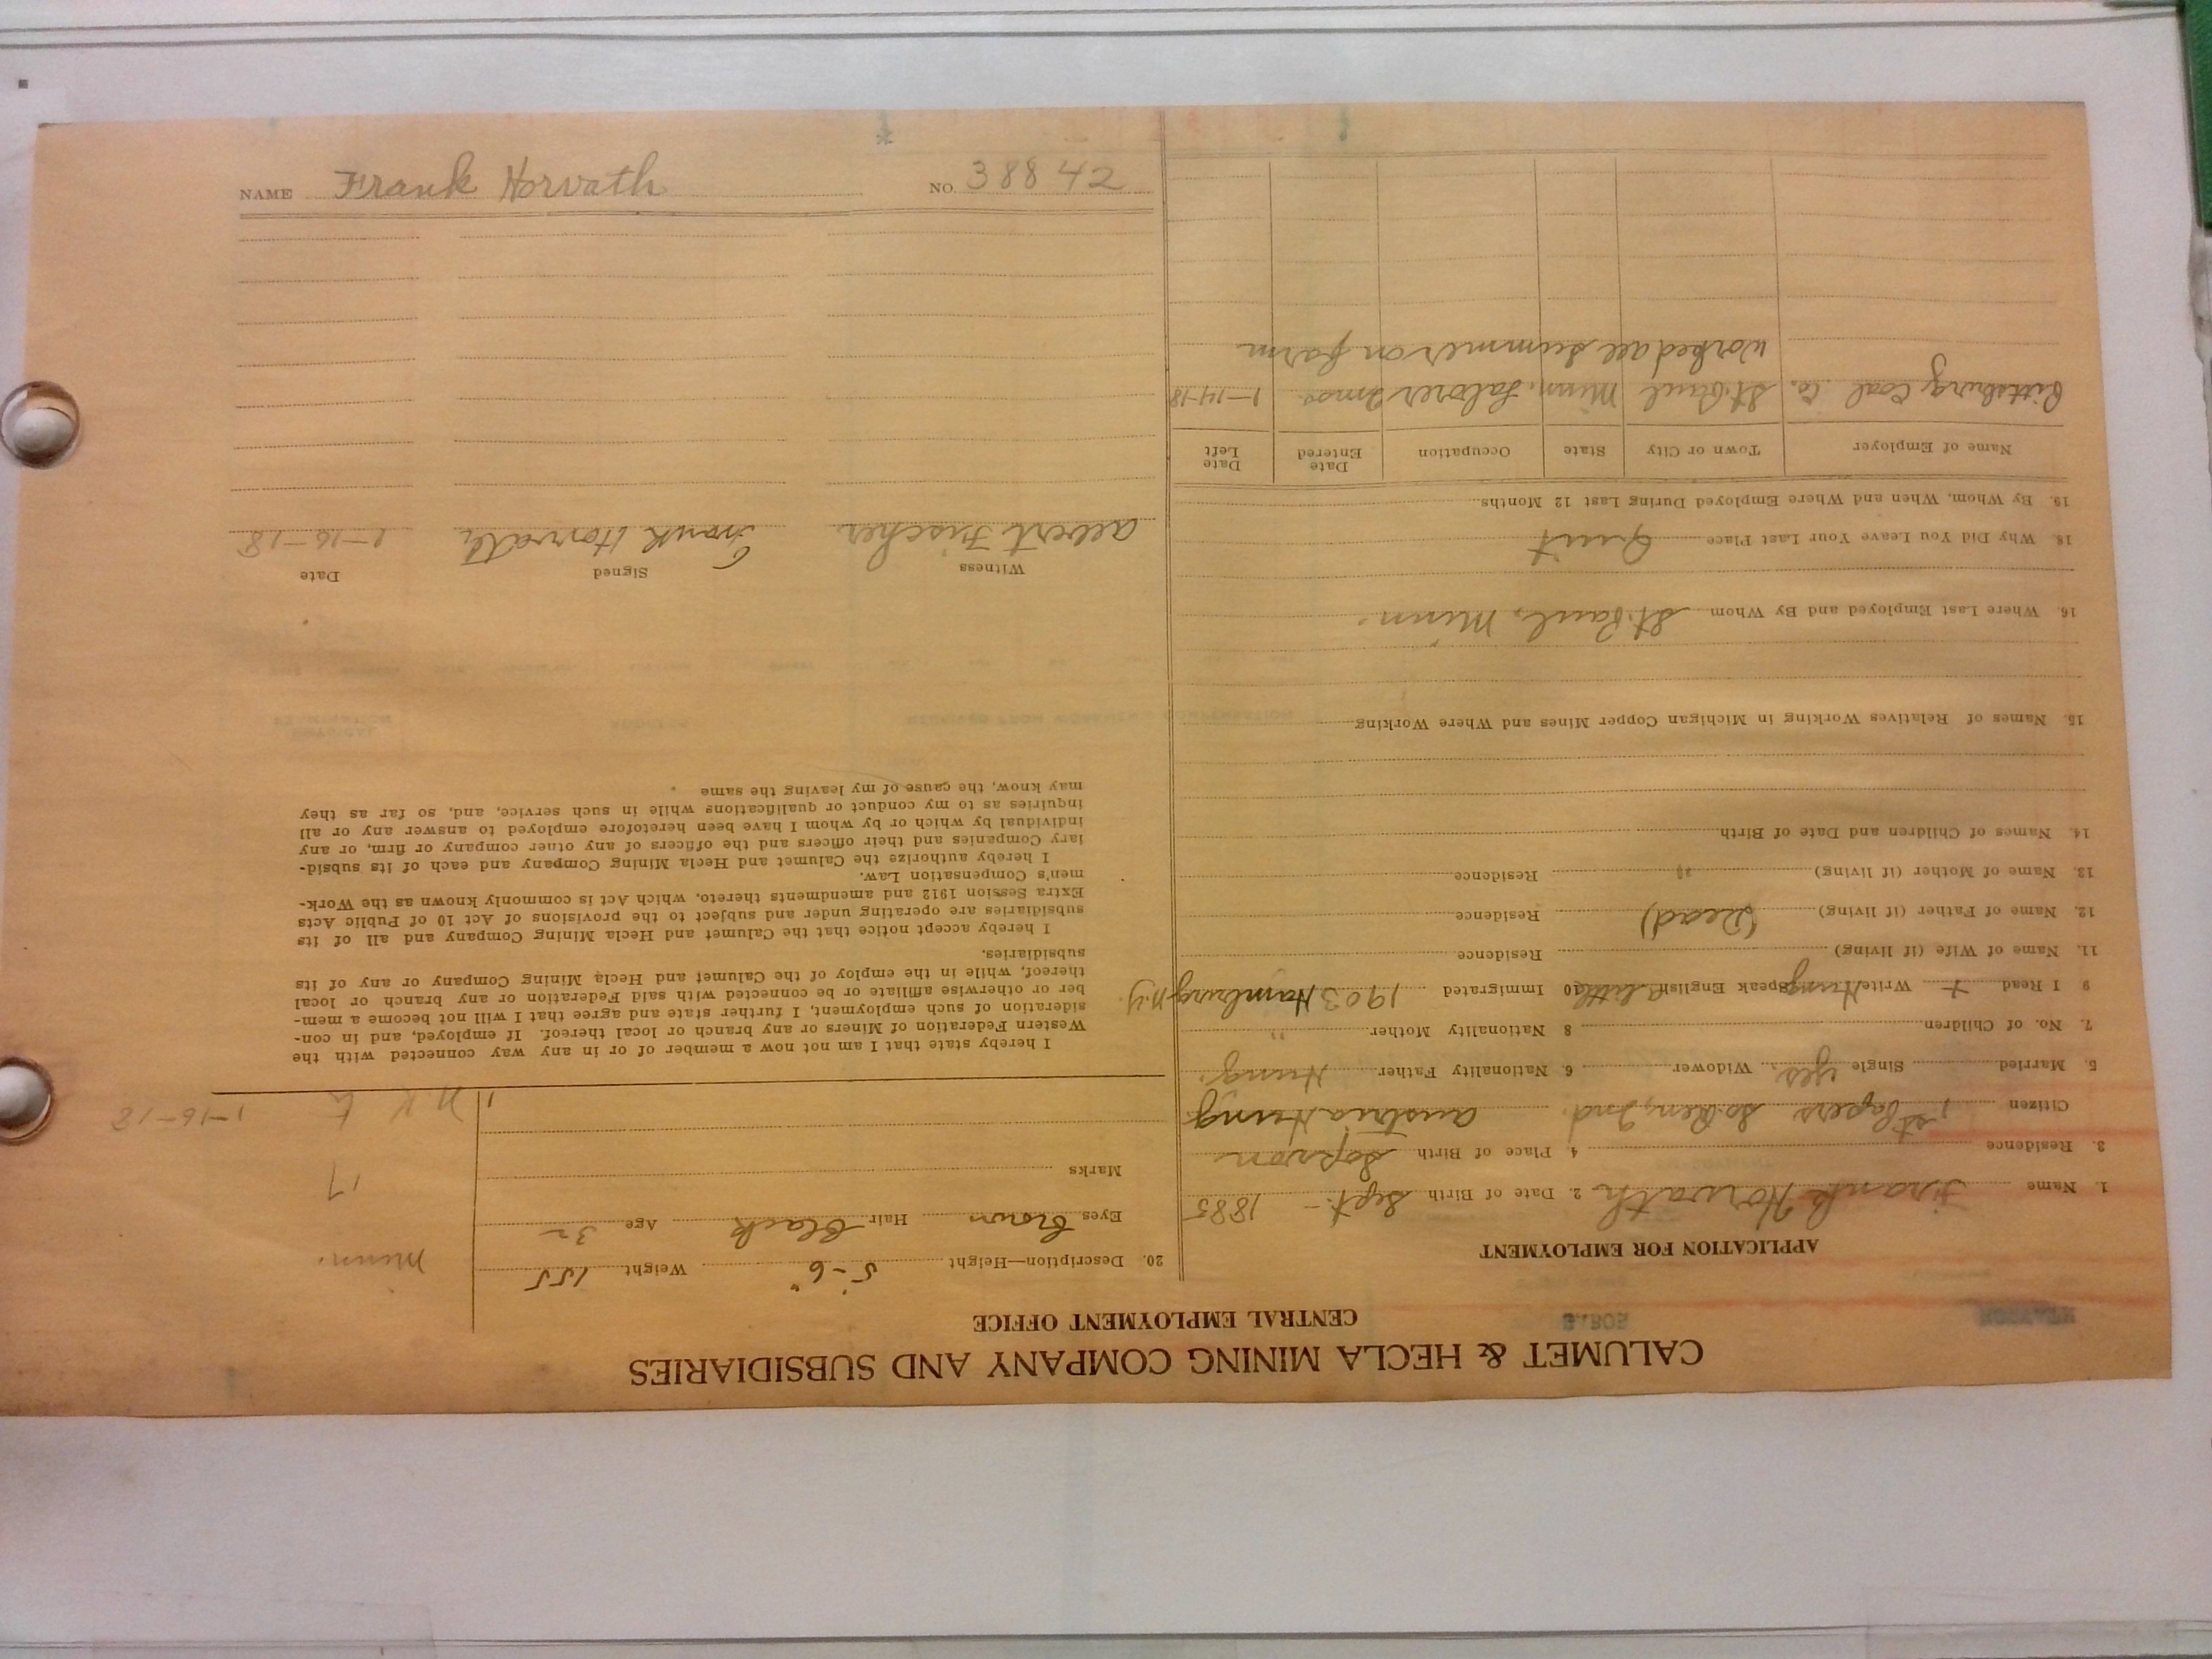 CALUMET & HECLA MINING COMPANY AND SUBSIDIARIES
CENTRAL EMPLOYMENT OFFICE
APPLICATION FOR EMPLOYMENT
1. Name Frank Horvath 2. Date of Birth Sept. - 1885
3. Residence 4. Place of Birth Sopron
Citizen 1st Papers So. Ben, Ind. Austria Hung
5. Married Single yes Widower 6. Nationality Father Hung.
7. No. of Children 8 Nationality Mother "
9 I Read + Write Hung Speak English little 10 Immigrated 1903 Hamburg N.Y.
11. Name of Wife (if living) Residence
12. Name of Father (if living) (Dead) Residence
13. Name of Mother (if living) " Residence
14. Names of Children and Date of Birth
15. Names of Relatives Working in Michigan Copper Mines and Where Working
16. Where Last Employed and By Whom St. Paul, Minn.
18. Why Did You Leave Your Last Place Quit
19. By Whom, When and Where Employed During Last 12 Months.
Name of Employer Town or City State Occupation Date Entered Date Left
Pittsburg Coal Co. St. Paul Minn. Laborer 2 mos. 1-14-18
Worked all summer on farm
20. Description—Height 5'-6" Weight 155
Eyes Brown Hair Black Age 32
Marks
Minn.
17
1-16-18
I hereby state that I am not now a member of or in any way connected with the
Western Federation of Miners or any branch or local thereof. If employed, and in con-
sideration of such employment, I further state and agree that I will not become a mem-
ber or otherwise affiliate or be connected with said Federation or any branch or local
thereof, while in the employ of the Calumet and Hecla Mining Company or any of its
subsidiaries.
I hereby accept notice that the Calumet and Hecla Mining Company and all of its
subsidiaries are operating under and subject to the provisions of Act 10 of Public Acts
Extra Session 1912 and amendments thereto, which Act is commonly known as the Work-
men's Compensation Law.
I hereby authorize the Calumet and Hecla Mining Company and each of its subsid-
iary Companies and their officers and the officers of any other company or firm, or any
individual by which or by whom I have been heretofore employed to answer any or all
inquiries as to my conduct or qualifications while in such service, and, so far as they
may know, the cause of my leaving the same
Witness Signed Date
Albert Fischer Frank Horvath 1-16-18
NAME Frank Horvath NO. 38842